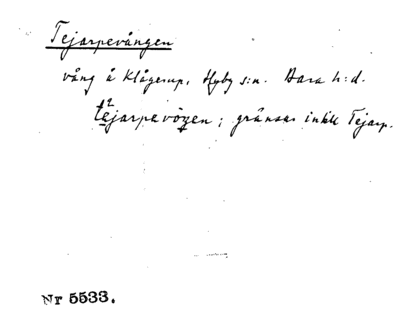 Tejarpevången
vång å Klågerup, Hyby s:n. Bara h:d.
tejarpevången; gränsar intill Tejarp.
Nr 5533.